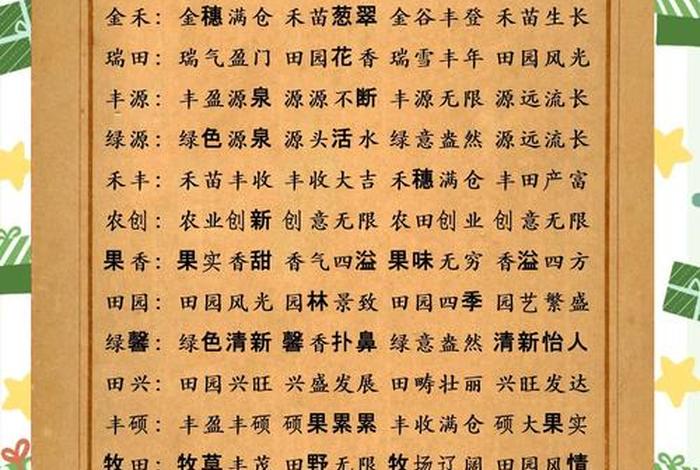 金禾：金穗满仓 禾苗葱翠 金谷丰登 禾苗生长
瑞田：瑞气盈门 田园花香 瑞雪丰年 田园风光
丰源：丰盈源泉 源源不断 丰源无限 源远流长
绿源：绿色源泉 源头活水 绿意盎然 源远流长
禾丰：禾苗丰收 丰收大吉 禾穗满仓 丰田产富
农创：农业创新 创意无限 农田创业 创意无限
果香：果实香甜 香气四溢 果味无穷 香溢四方
田园：田园风光 园林景致 田园四季 园艺繁盛
绿馨：绿色清新 馨香扑鼻 绿意盎然 清新怡人
田兴：田园兴旺 兴盛发展 田畴壮丽 兴旺发达
丰硕：丰盈丰硕 硕果累累 丰收满仓 硕大果实
牧田：牧草丰茂 田野无限 牧场辽阔 田园风情